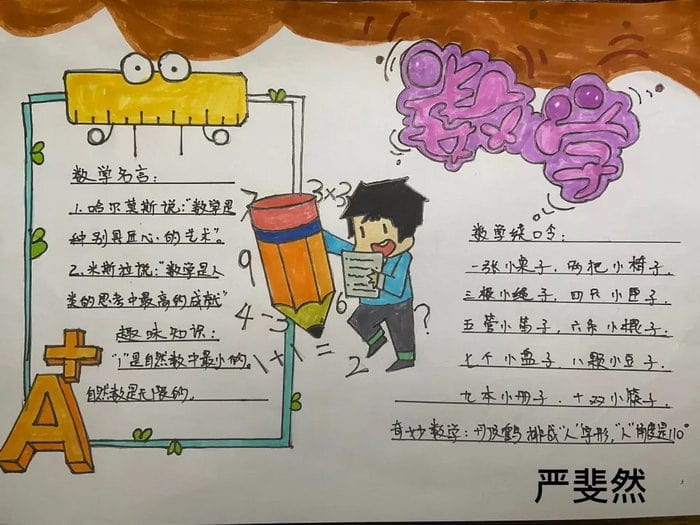 数学
数学名言：
1.哈尔莫斯说："数学是
种别具匠心的艺术"。
2.米斯拉说："数学是人
类的思考中最高的成就"
趣味知识：
"1"是自然数中最小的。
自然数是无限的。
A+
3×3
9
4-3
6
1+1=
2
?
数学绕口令：
一张小桌子，两把小椅子，
三根小绳子，四只小匣子，
五管小笛子，六条小棍子，
七个小盘子，八颗小豆子，
九本小册子，十双小筷子，
奇妙数学：丹顶鹤排成"人"字形，"人"角度是110°
严斐然